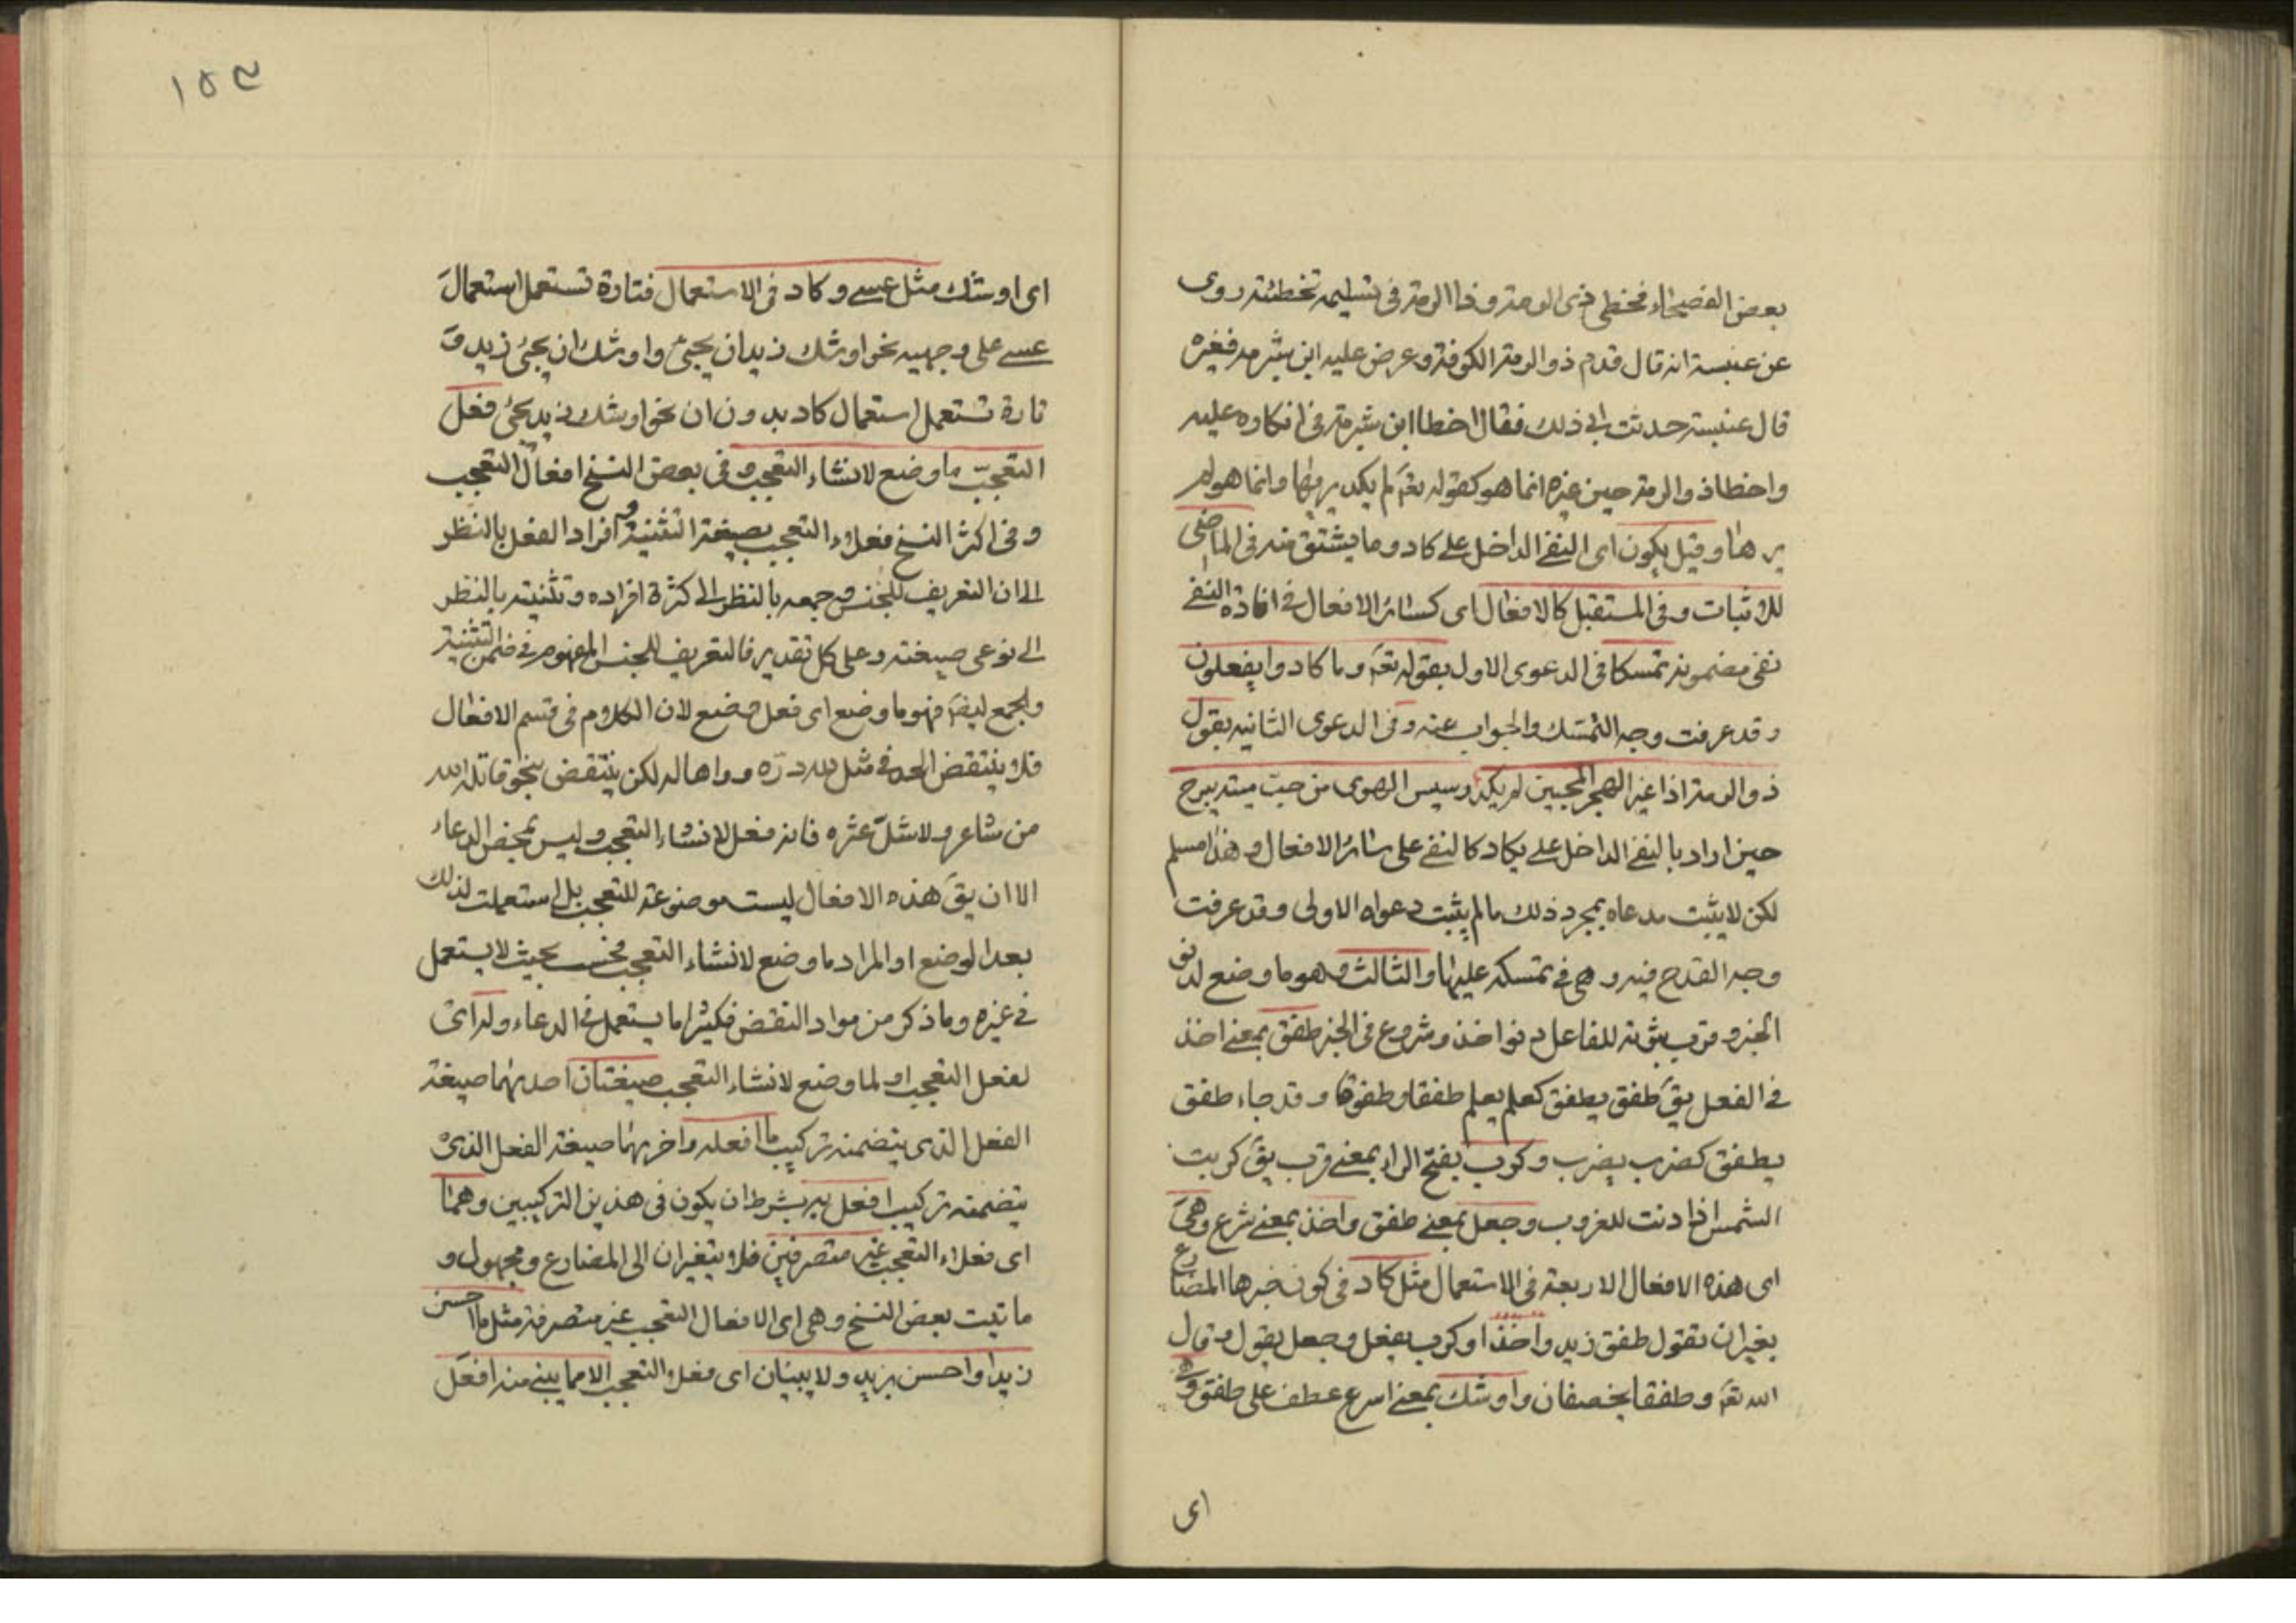 بعض الفصحاء مخطى ذى الرمة وذا الرمة فى تسليمه تخطئته روى
عن عنبسة انه قال قدم ذو الرمة الكوفة وعرض عليه ابن شبرمة فغيره
قال عنبسة حدثت ابى ذلك فقال اخطا ابن شبرمة فى انكاره عليه
واخطا ذو الرمة حين غيره انما هو كقوله تعَ لم يكد يريها وانما هو لم
يرها وقيل يكون اى النفى الداخل على كاد وما يشتق منه فى الماضى
للاثبات وفى المستقبل كالافعال اى كسائر الافعال فى افادة النفى
نفى مضمونه تمسكا فى الدعوى الاولى بقوله تعَ وما كادوا يفعلون
وقد عرفت وجه التمسك والجواب عنه وفى الدعوى الثانيه بقول
ذو الرمة اذا غير الهجر المحبين لم يكد رسيس الهوى من حب ميته يبرح
حين اراد بالنفى الداخل على يكاد كالنفى على سائر الافعال وهذا مسلم
لكن لا يثبت مدعاه بمجرد ذلك ما لم يثبت دعواه الاولى وقد عرفت
وجه القدح فيه وهى فى تمسكه عليها والثالث وهو ما وضع لدنو
الخبر وقرب ثبوته للفاعل دنو اخذ وشروع فى الخبر طفق بمعنى اخذ
فى الفعل يقَ طفق يطفق كعلم يعلم طفقا وطفوقا وقد جاء طفق
يطفق كضرب يضرب وكرب بفتح الراء بمعنى قرب يقَ كربت
الشمس اذا دنت للغروب وجعل بمعنى طفق واخذ بمعنى شرع وهى
اى هذه الافعال الاربعة فى الاستعمال مثل كاد فى كون خبرها المضارع
بغير ان تقول طفق زيد واخذ او كرب يفعل وجعل يقول وقال
الله تعَ وطفقا يخصفان واوشك بمعنى اسرع عطف على طفق وهى
اى
١٥٣
اى اوشك مثل عسى وكاد فى الاستعمال فتارة تستعمل استعمال
عسى على وجهيه نحو اوشك زيد ان يجئ واوشك ان يجئ زيد و
تارة تستعمل استعمال كاد بدون ان نحو اوشك زيد يجئ فعل
التعجب ما وضع لانشاء التعجب وفى بعض النسخ افعال التعجب
وفى اكثر النسخ فعلاء التعجب بصيغة التثنية وافراد الفعل بالنظر
الى ان التعريف للجنس وجمعه بالنظر الى كثرة افراده وتثنيته بالنظر
الى نوعى صيغته وعلى كل تقدير فالتعريف للجنس المفهوم فى ضمن التثنية
والجمع ايضَ فهو ما وضع اى فعل وضع لان الكلام فى قسم الافعال
فلا ينتقض الحد فى مثل لله درّه وواها له لكن ينتقض بنحو قاتله الله
من شاعر ولا شلّ عشره فانه فعل لانشاء التعجب وليس بمحض الدعاء
الا ان يقَ هذه الافعال ليست موضوعة للتعجب بل استعملت لذلك
بعد الوضع او المراد ما وضع لانشاء التعجب فحسب بحيث لا يستعمل
فى غيره وما ذكر من مواد النقض فكثيرا ما يستعمل فى الدعاء وله اى
لفعل التعجب او لما وضع لانشاء التعجب صيغتان احديهما صيغة
الفعل الذى يتضمنه تركيب ما افعله واخريهما صيغة الفعل الذى
يتضمنه تركيب افعل به بشرط ان يكون فى هذين التركيبين وهما
اى فعلاء التعجب غير متصرفين فلا يتغيران الى المضارع ومجهول و
ما تيت بعض النسخ وهى اى الافعال التعجب غير متصرفة مثل ما احسن
زيدا واحسن بزيد ولا يبنيان اى فعلا التعجب الا مما يبنى منه افعل